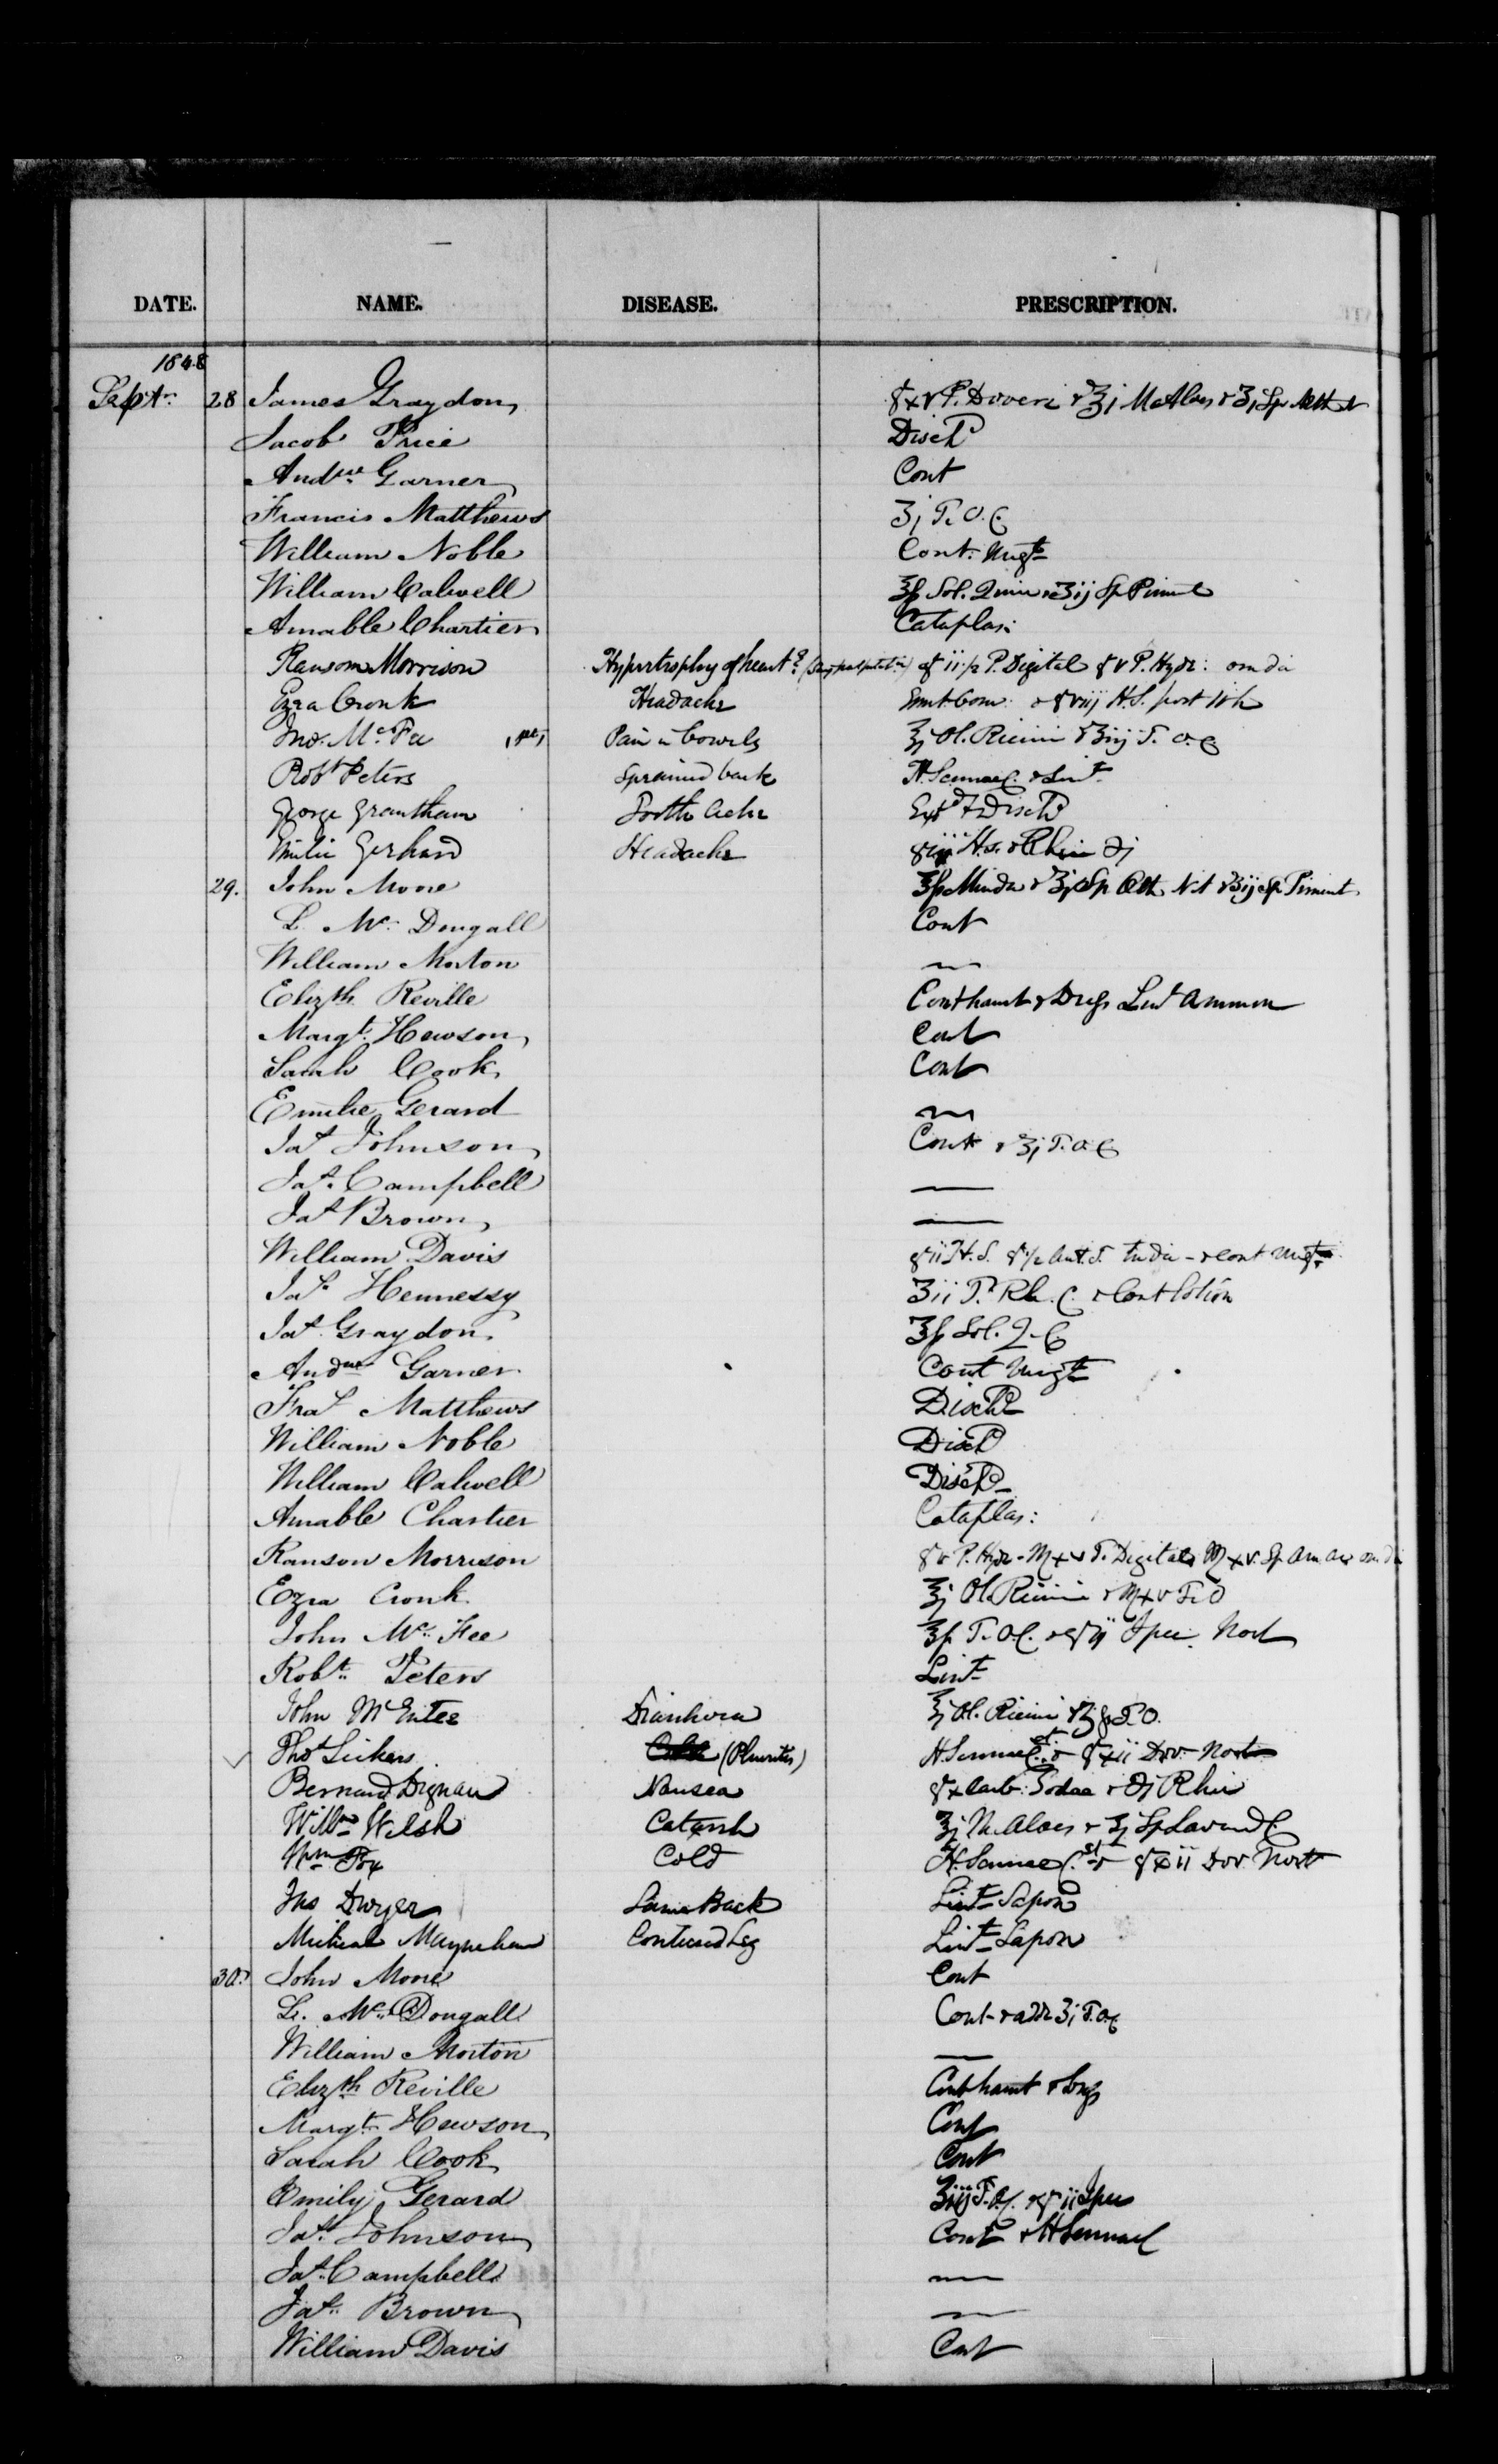 DATE. NAME. DISEASE. PRESCRIPTION.
1848
Sept. 28 James Graydon gr xv P. Doveri & ʒj M Aloes & ʒj Sp Æth N
Jacob Price Disch
Andw Garner Cont
Francis Matthews ʒj T.O.C.
William Noble Cont. Ungt
William Calwell ʒß Sol. Quin & ʒij Sp Piment
Amable Chartier Cataplas:
Ransom Morrison Hypertrophy of heart? P. Digital gr v P. Hydr: om die
Ezra Cronk Headache H.S. post
Jno. McFee Pain in bowels ℥j Ol. Ricini & ʒiij T.O.C
Robt Peters Sprained back H. Sennae C. & Lint
George Grantham Tooth Ache Extd & Disch
Emilie Gerhard Headache H.S. & Rhei ℈j
29. John Moore Minder & ʒj Sp Æth Nit & ʒij Sp Piment
L. Mc Dougall Cont
William Morton
Elizth Reville Cont haust & Lint Ammon
Margt Hewson Cont
Sarah Cook Cont
Emilie Gerard
Jas Johnson Cont & ʒj T.O.C
Jas. Campbell —
Jas Brown —
William Davis gr ii H.S. gr ½ Ant. T. & cont Ungt
Jas Hennessy ʒii T. Rh. C. & Cont Lotion
Jas. Graydon ʒß Sol. Q. C
Andw Garner Cont Ungt
Fras Matthews Disch
William Noble Disch
William Calwell Disch
Amable Chartier Cataplas:
Ranson Morrison gr v P. Hydr - ♏xv T. Digitalis ♏xv. Sp Am Ar om di
Ezra Cronk ℥j Ol. Ricini & ♏xv T. O
John Mc Fee ʒß T.O.C. & gr ij Ipec. Noct
Robt Peters Lint
John McEntee Diarrhoea ℥j Ol. Ricini T.O.
Thos (Pleuritis) H. Sennae C. st & gr xii Dov. Nocte
Bernard Dignan Nausea gr x Carb: Sodae & ℈j Rhei
Willm Welsh Catarrh ℥j M. Aloes & ʒj Sp Lavend C
Wm Fox Cold H. Sennae C. st & gr xii Dov. Noct
Jno Dwyer Lame Back Lint Sapon
Michael Contused Leg Lint Sapon
30. John Moore Cont
L. Mc Dougall Cont & add ʒj T.O.C
William Morton —
Elizth Reville Cont haust
Margt Hewson Cont
Sarah Cook Cont
Emily Gerard ʒiij T.O.C. & gr ii Ipec
Jas. Johnson Cont & H Sennae C
Jas. Campbell —
Jas. Brown —
William Davis Cont